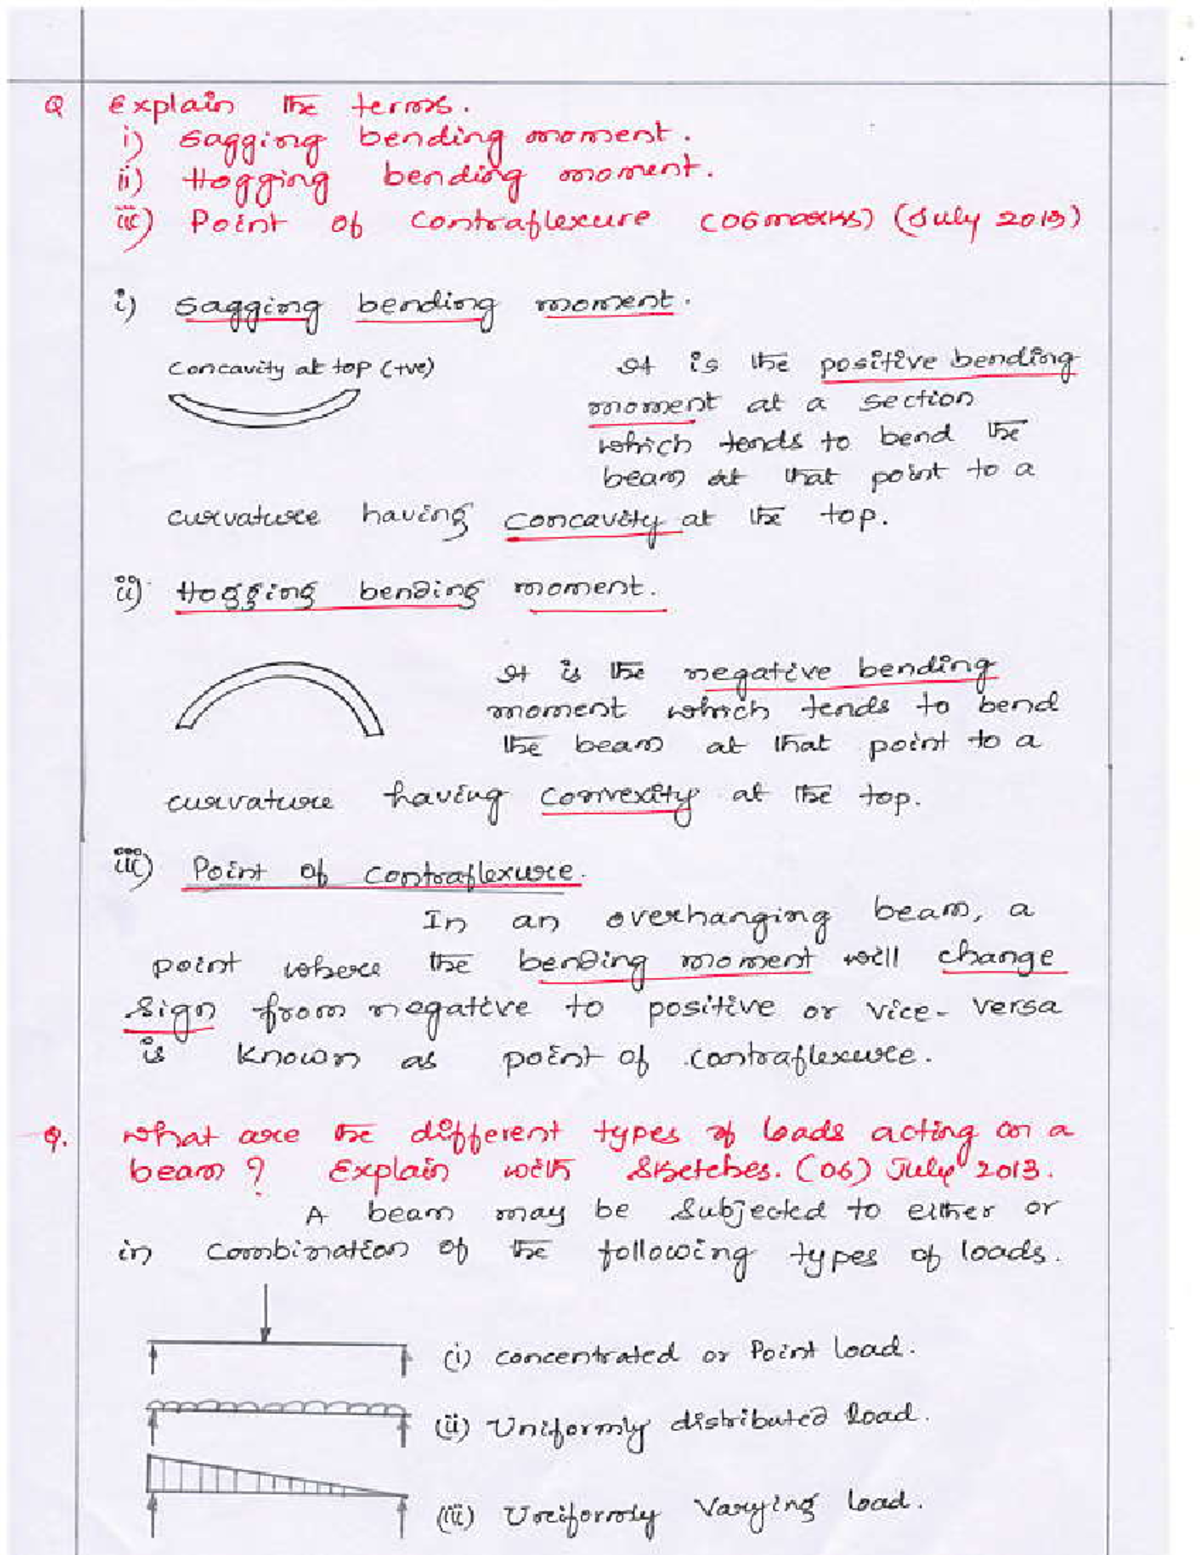 Q Explain the terms.
i) Sagging bending moment.
ii) Hogging bending moment.
iii) Point of contraflexure (06marks) (July 2013)
i) Sagging bending moment.
Concavity at top (+ve)
It is the positive bending
moment at a section
which tends to bend the
beam at that point to a
curvature having concavity at the top.
ii) Hogging bending moment.
It is the negative bending
moment which tends to bend
the beam at that point to a
curvature having convexity at the top.
iii) Point of contraflexure.
In an overhanging beam, a
point where the bending moment will change
sign from negative to positive or vice-versa
is known as point of contraflexure.
Q. What are the different types of loads acting on a
beam? Explain with sketches. (06) July 2013.
A beam may be subjected to either or
in combination of the following types of loads.
(i) Concentrated or Point load.
(ii) Uniformly distributed load.
(iii) Uniformly Varying load.